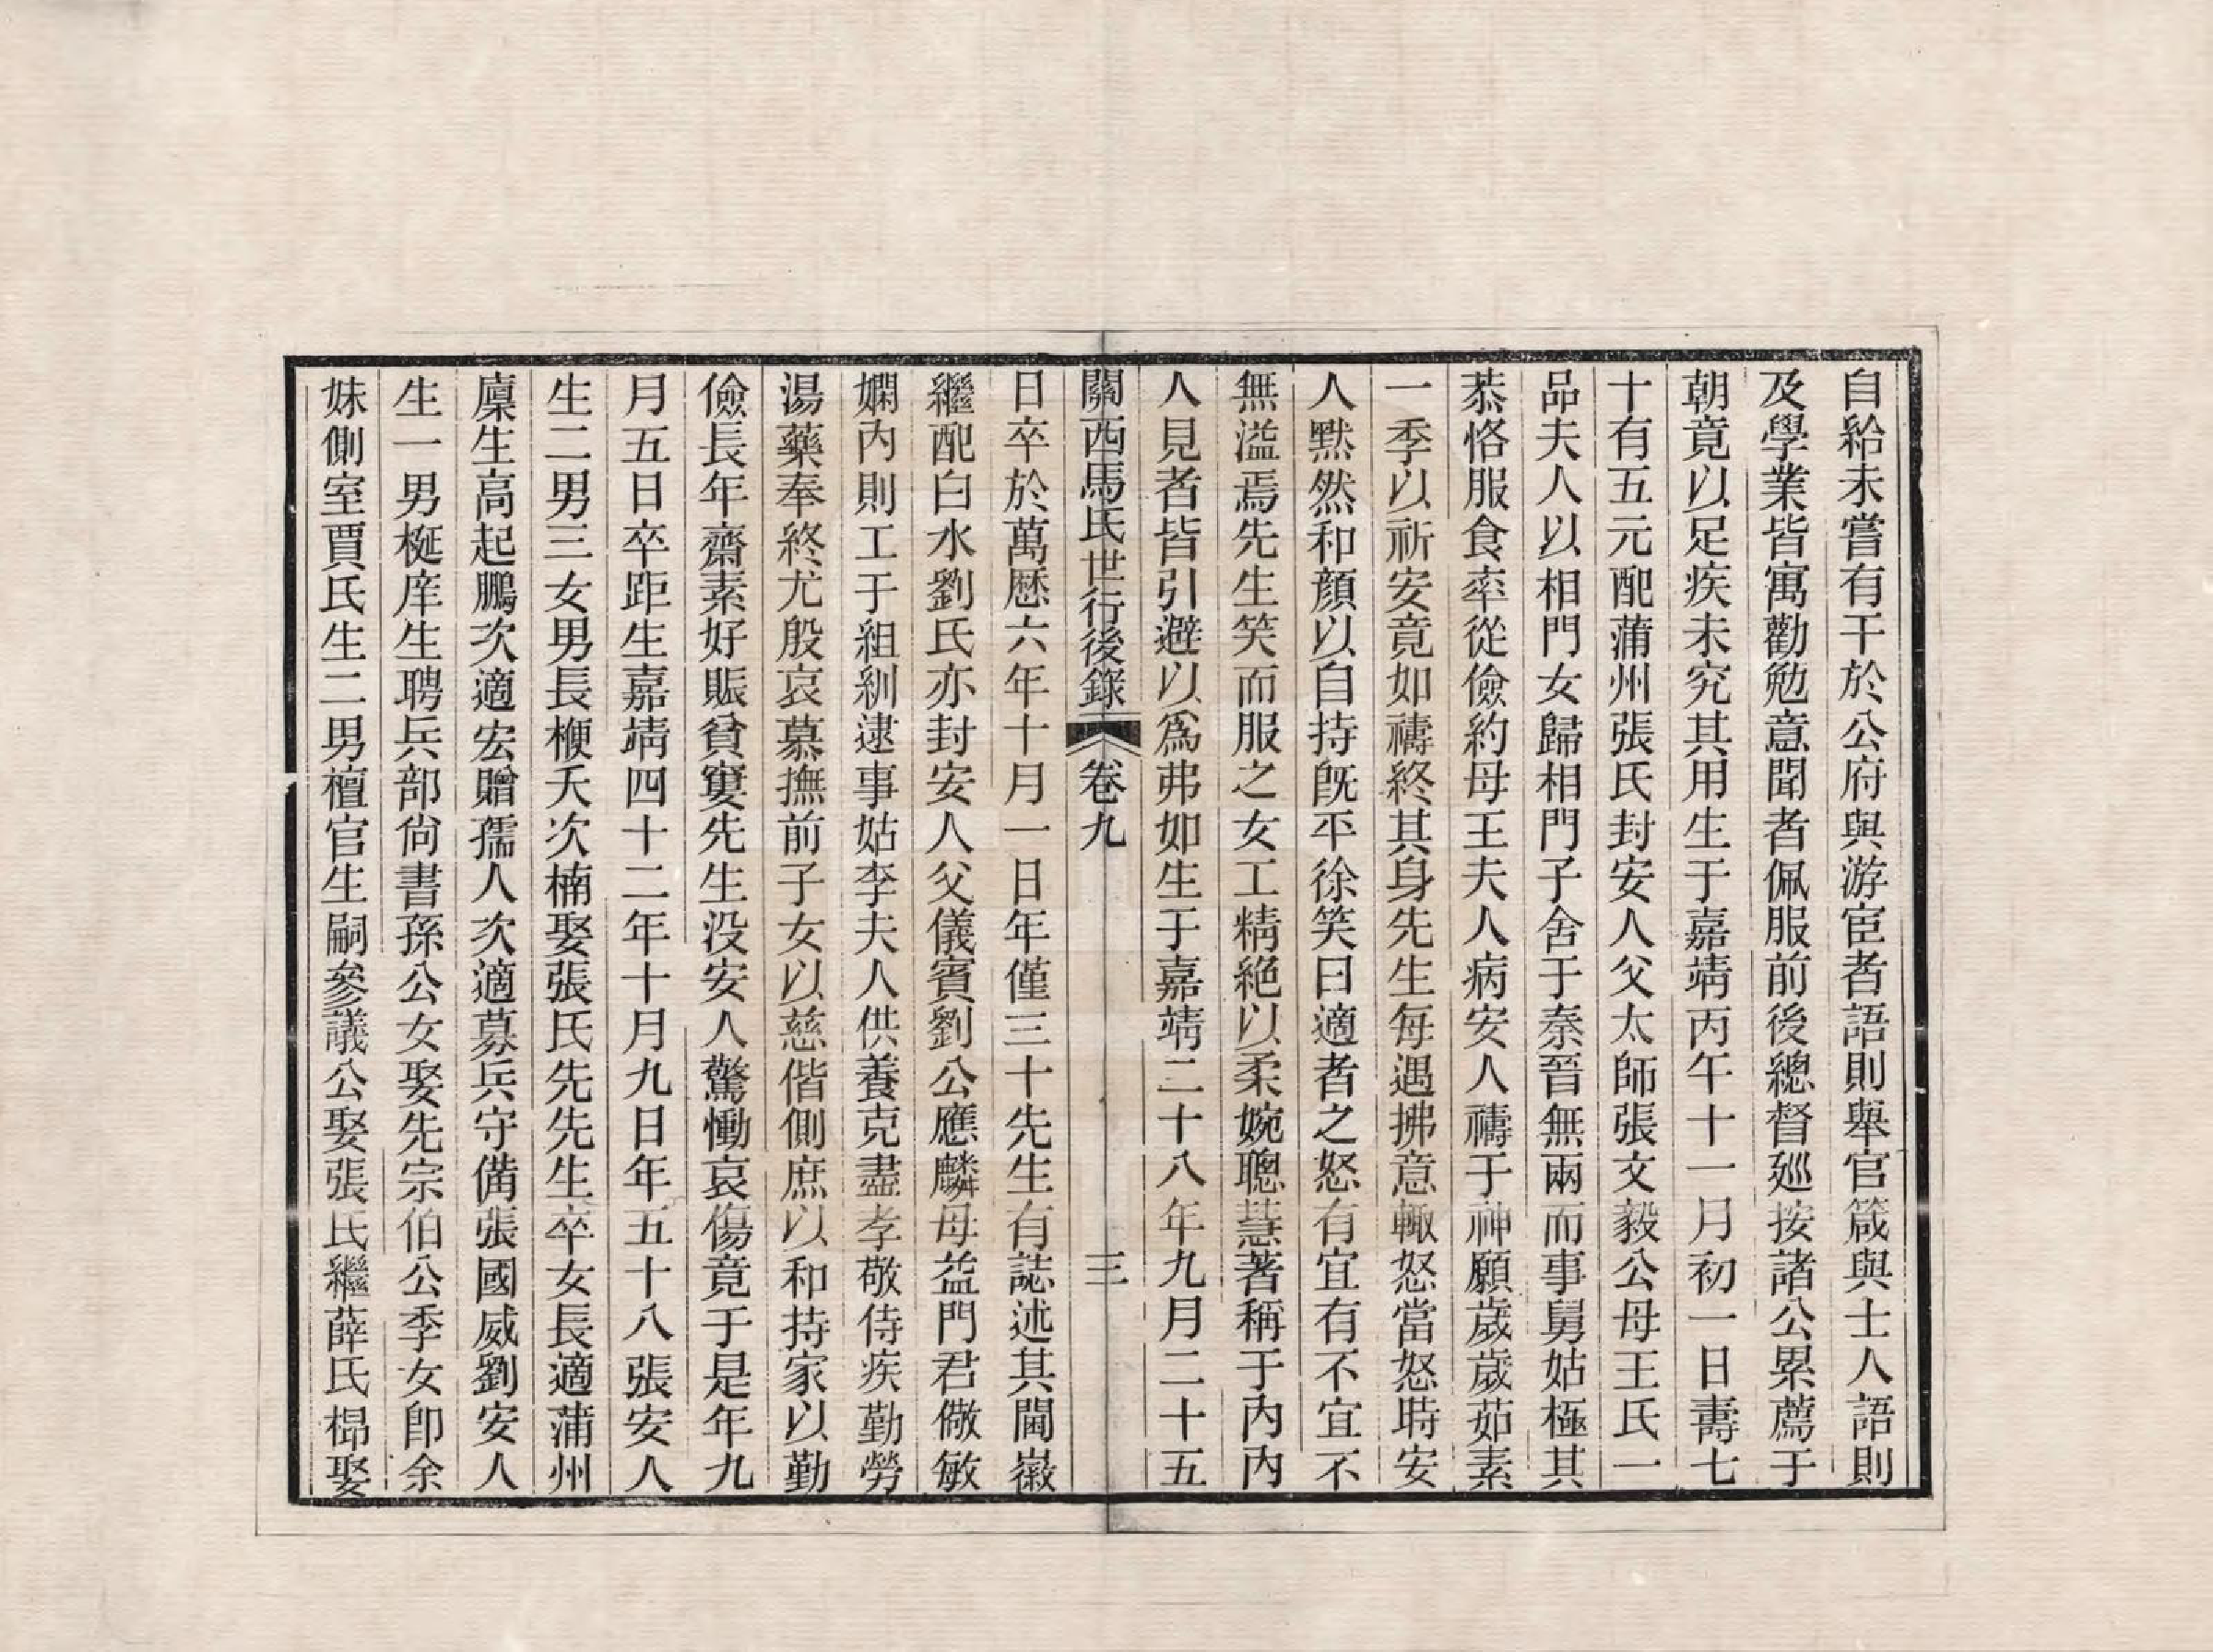 自給未嘗有干於公府與游宦者語則舉官箴與士人語則
及學業皆寓勸勉意聞者佩服前後總督廵按諸公累薦于
朝竟以足疾未究其用生于嘉靖丙午十一月初一日壽七
十有五元配蒲州張氏封安人父太師張文毅公母王氏一
品夫人以相門女歸相門子舍于秦晉無兩而事舅姑極其
恭恪服食率從儉約母王夫人病安人禱于神願歲歲茹素
一季以祈安竟如禱終其身先生每遇拂意輙怒當怒時安
人默然和顏以自持旣平徐笑曰適者之怒有宜有不宜不
無溢焉先生笑而服之女工精絕以柔婉聰慧著稱于內內
人見者皆引避以爲弗如生于嘉靖二十八年九月二十五
關西馬氏世行後錄 卷九 三
日卒於萬厯六年十月一日年僅三十先生有誌述其閫徽
繼配白水劉氏亦封安人父儀賓劉公應麟母益門君儆敏
嫻內則工于組紃逮事姑李夫人供養克盡孝敬侍疾勤勞
湯藥奉終尤殷哀慕撫前子女以慈偕側庶以和持家以勤
儉長年齋素好賑貧窶先生沒安人驚慟哀傷竟于是年九
月五日卒距生嘉靖四十二年十月九日年五十八張安人
生二男三女男長楩夭次楠娶張氏先先生卒女長適蒲州
廩生高起鵬次適宏贈孺人次適募兵守備張國威劉安人
生一男梴庠生聘兵部尙書孫公女娶先宗伯公季女卽余
妹側室賈氏生二男檀官生嗣參議公娶張氏繼薛氏棉娶